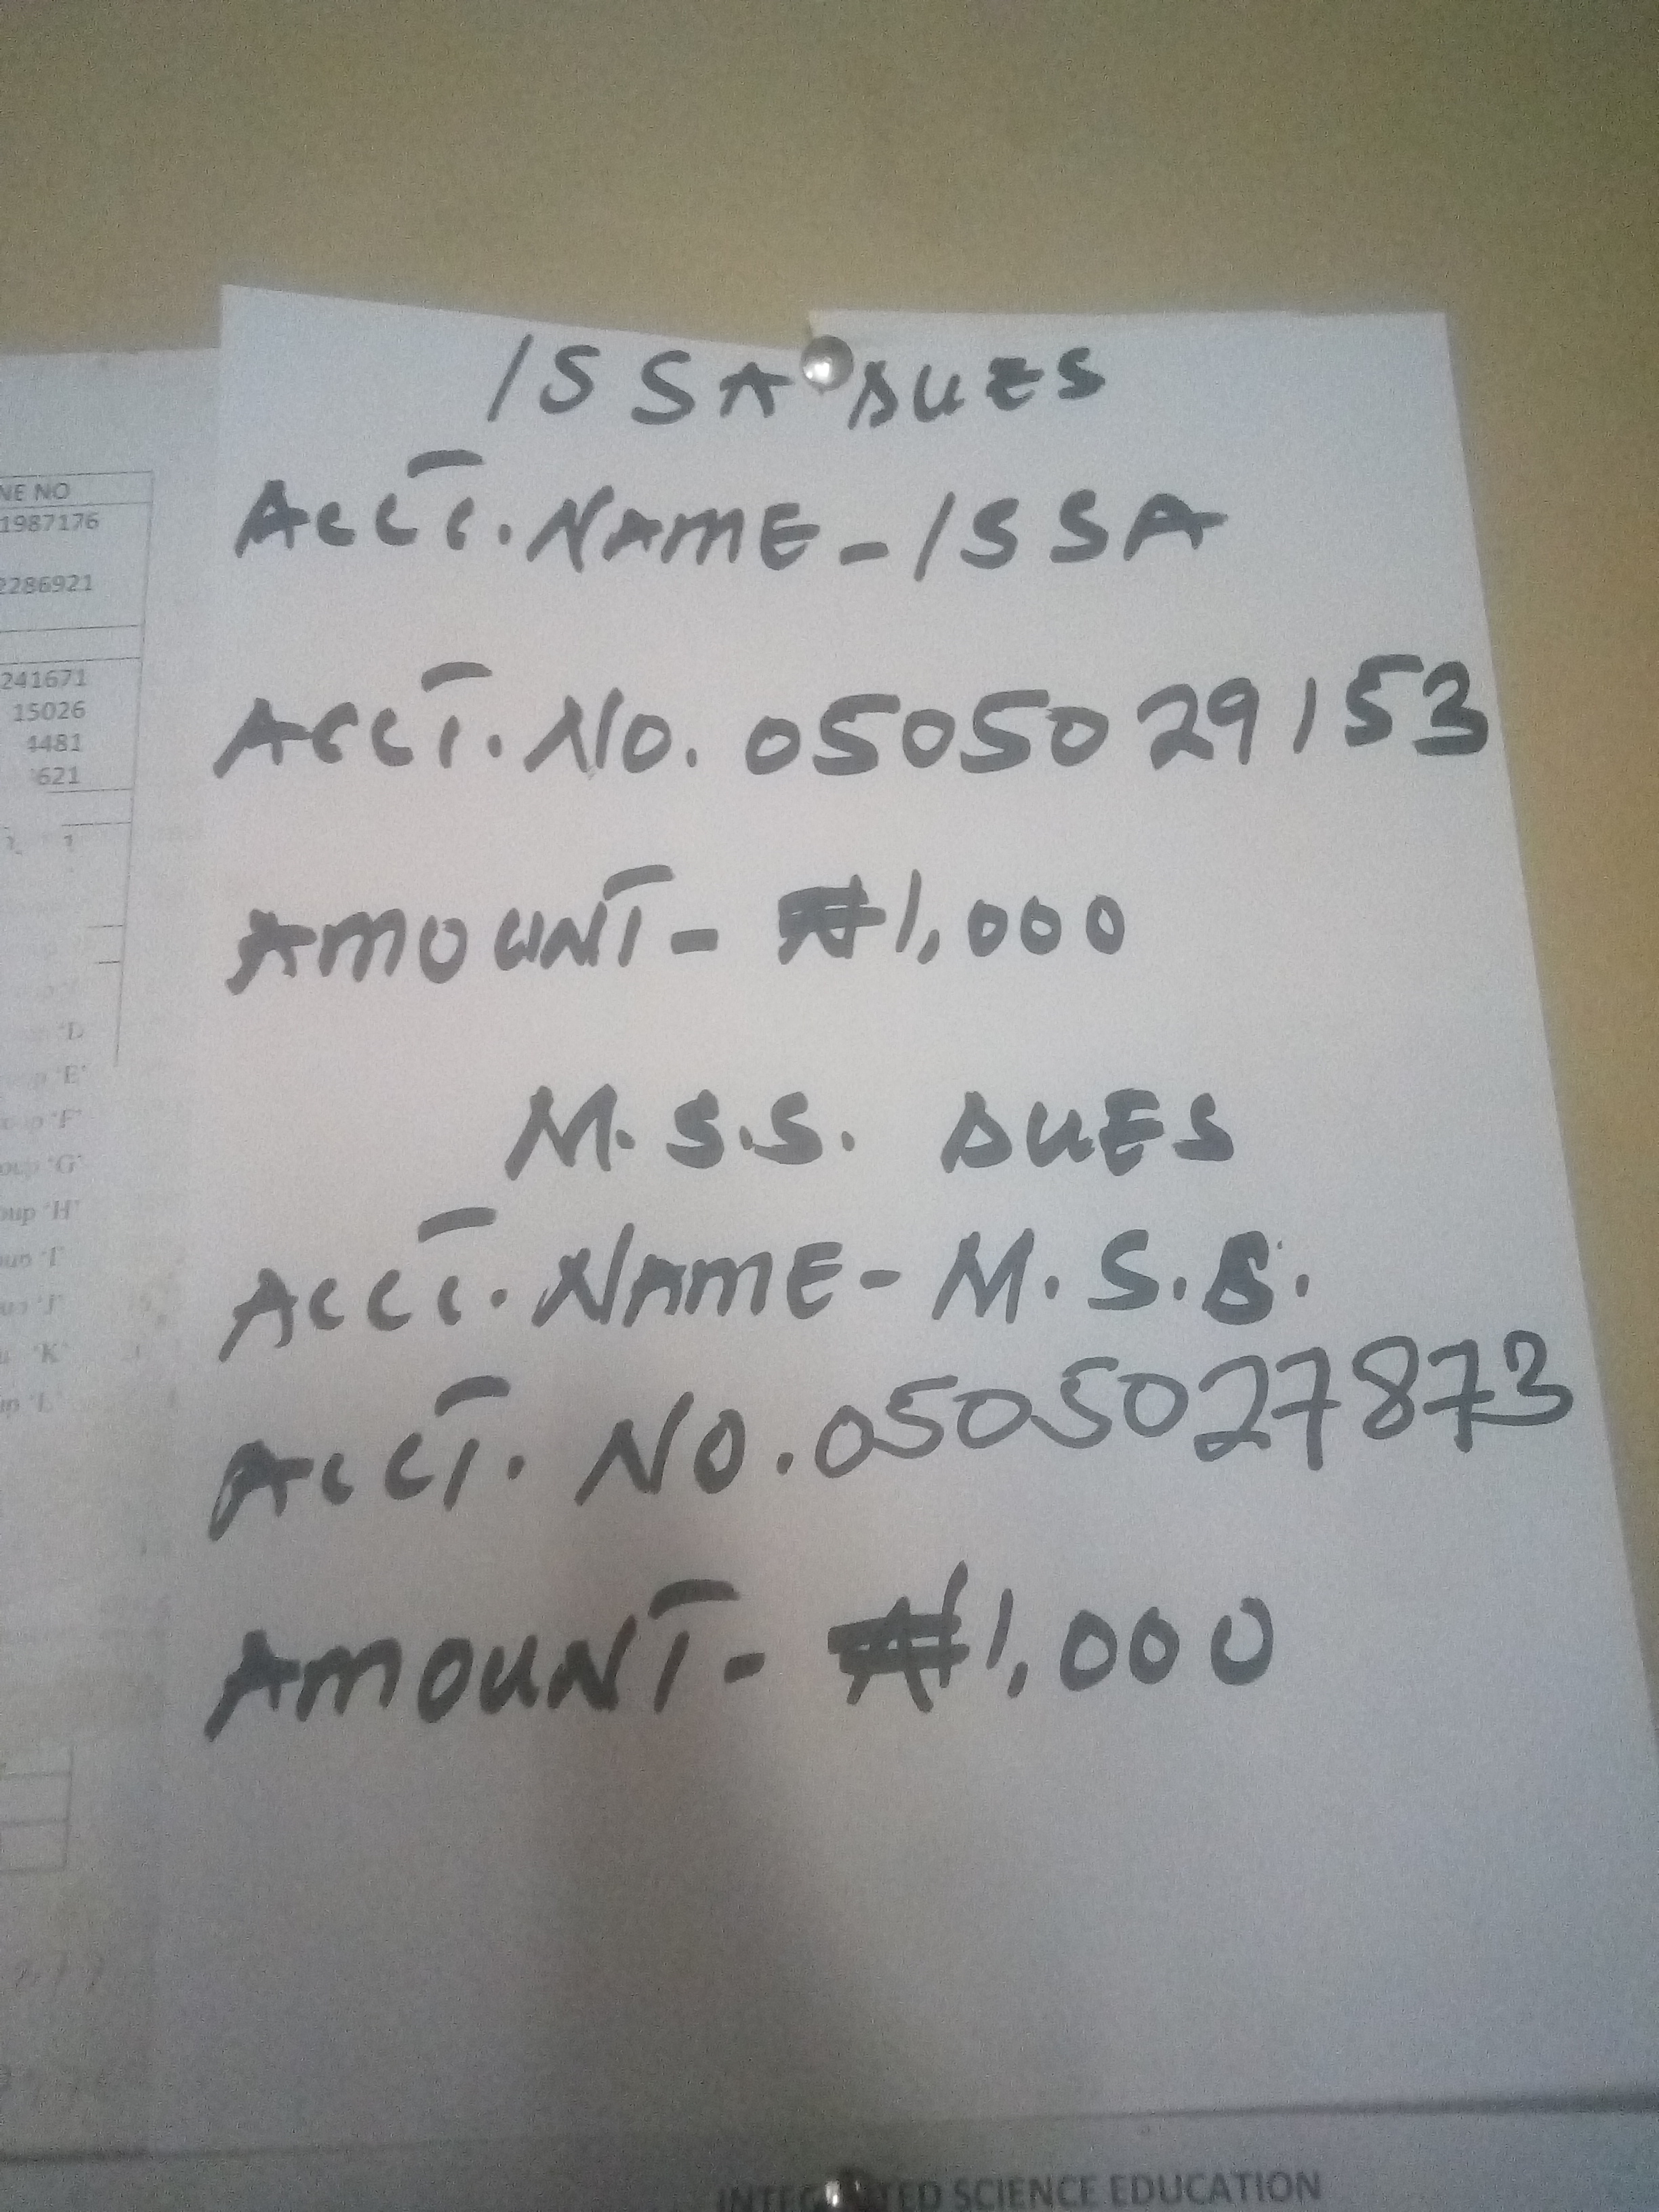 ISSA DUES
ACCT. NAME - ISSA
ACCT. NO. 0505029153
AMOUNT - ₦1,000
M.S.S. DUES
ACCT. NAME - M.S.S.
ACCT. NO. 0505027873
AMOUNT - ₦1,000
NE NO
1987176
2286921
241671
15026
4481
621
'E'
'F'
'G'
'H'
'K'
SCIENCE EDUCATION